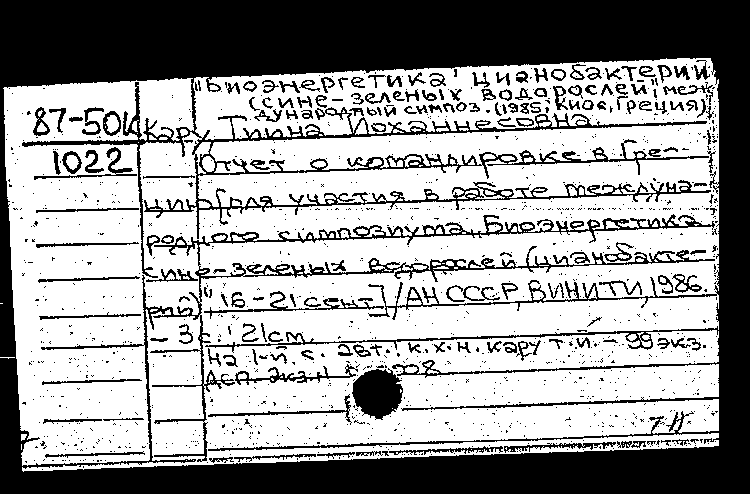 "Биоэнергетика цианобактерий
(сине-зеленых водорослей", меж
дународный симпоз. (1985; Киос, Греция)
87-50К Кару, Тиина Йоханнесовна.
1022 Отчет о командировке в Гре-
цию [для участия в работе междуна-
родного симпозиума „Биоэнергетика
сине-зеленых водорослей (цианобакте-
рий)", 16-21 сент.] / АН СССР, ВИНИТИ, 1986.
- 3 с.; 21 см.
На 1-й с. авт.: к.х.н. Кару Т.Й. - 99 экз.
Деп. экз.